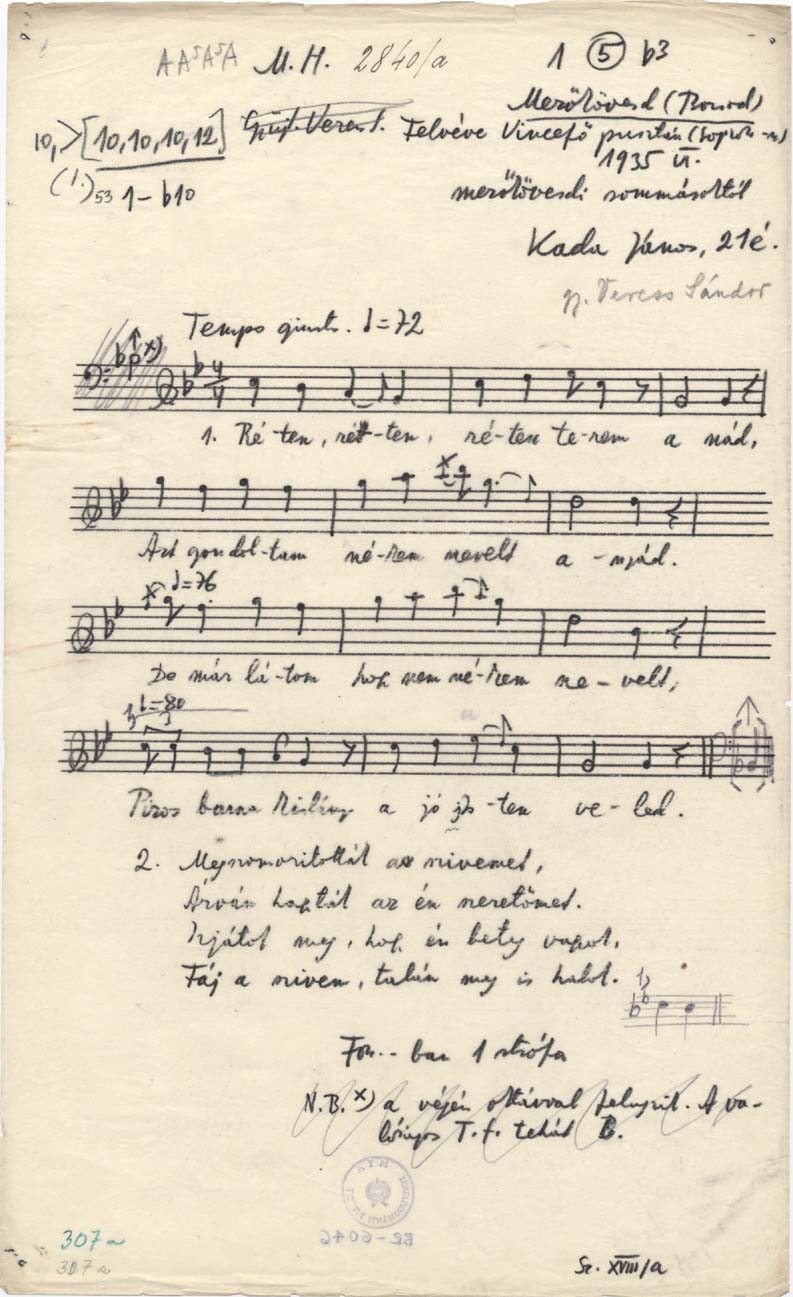 A A⁵ A⁵ A M.H. 2840/a 1 ⑤ b3
Mezőkövesd (Borsod)
10, > [10,10,10,12.] Gyűjt. Veress S. Felvéve Vincefő pusztán (Sopron-m)
1935 VI.
(1.) 53 1–b10
mezőkövesdi sommásoktól
Kada János, 21 é.
gy. Veress Sándor
Tempo giusto. ♩=72
1. Ré-ten, rét-ten, ré-ten te-rem a nád,
Azt gondol-tam né-kem nevelt a-nyád.
♩=76
De már lá-tom hogy nem né-kem ne-velt,
♩=80
3
Piros barna kislány a jó Is-ten ve-led.
2. Megszomorítottál az szivemet,
Árván hagytál az én szeretőmet.
Irjátok meg, hogy én beteg vagyok,
Fáj a szivem, talán meg is halok.
Fon.-ban 1 strófa
N.B. x) a végén oktávval felugrik. A va-
lóságos T.f. tehát B.
307a
307a
BR-6046
Sz. XVIII/a